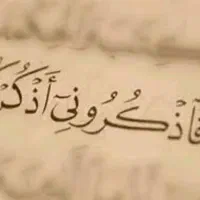 فَاذْكُرُونِيٓ أَذْكُرْ